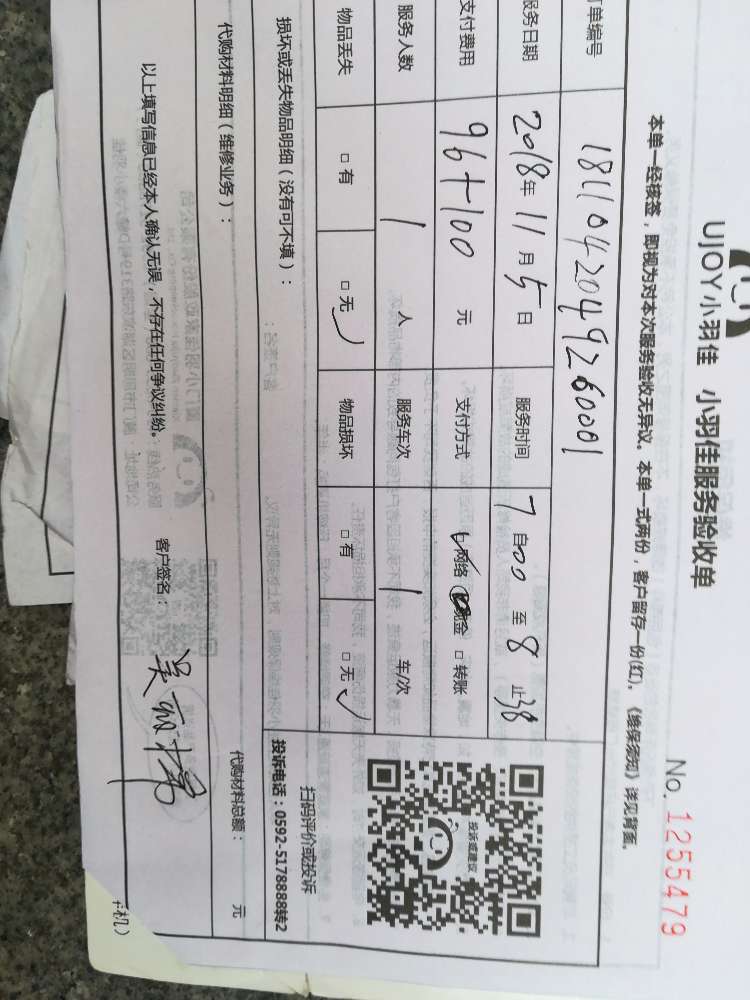 UJOY小羽佳 小羽佳服务验收单
No. 1255479
本单一经核签，即视为对本次服务验收无异议。本单一式两份，客户留存一份(红)。《维保须知》详见背面。
订单编号 1811042049260001
服务日期 2018年11月5日 服务时间 7自00至8止38
支付费用 96+100 元 支付方式 网络 现金 □转账
服务人数 1 人 服务车次 1 车/次
物品丢失 □有 □无 物品损坏 □有 □无
投诉或建议
扫码评价或投诉
投诉电话：0592-5178888转2
损坏或丢失物品明细（没有可不填）：
代购材料明细（维修业务）： 代购材料总额： 元
以上填写信息已经本人确认无误，不存在任何争议纠纷。 客户签名：